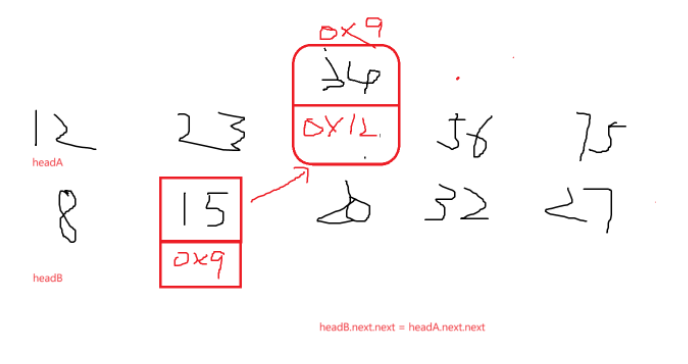 0x9
34
12 23 0x12 56 75
headA
8 15 20 32 27
0x9
headB
headB.next.next = headA.next.next